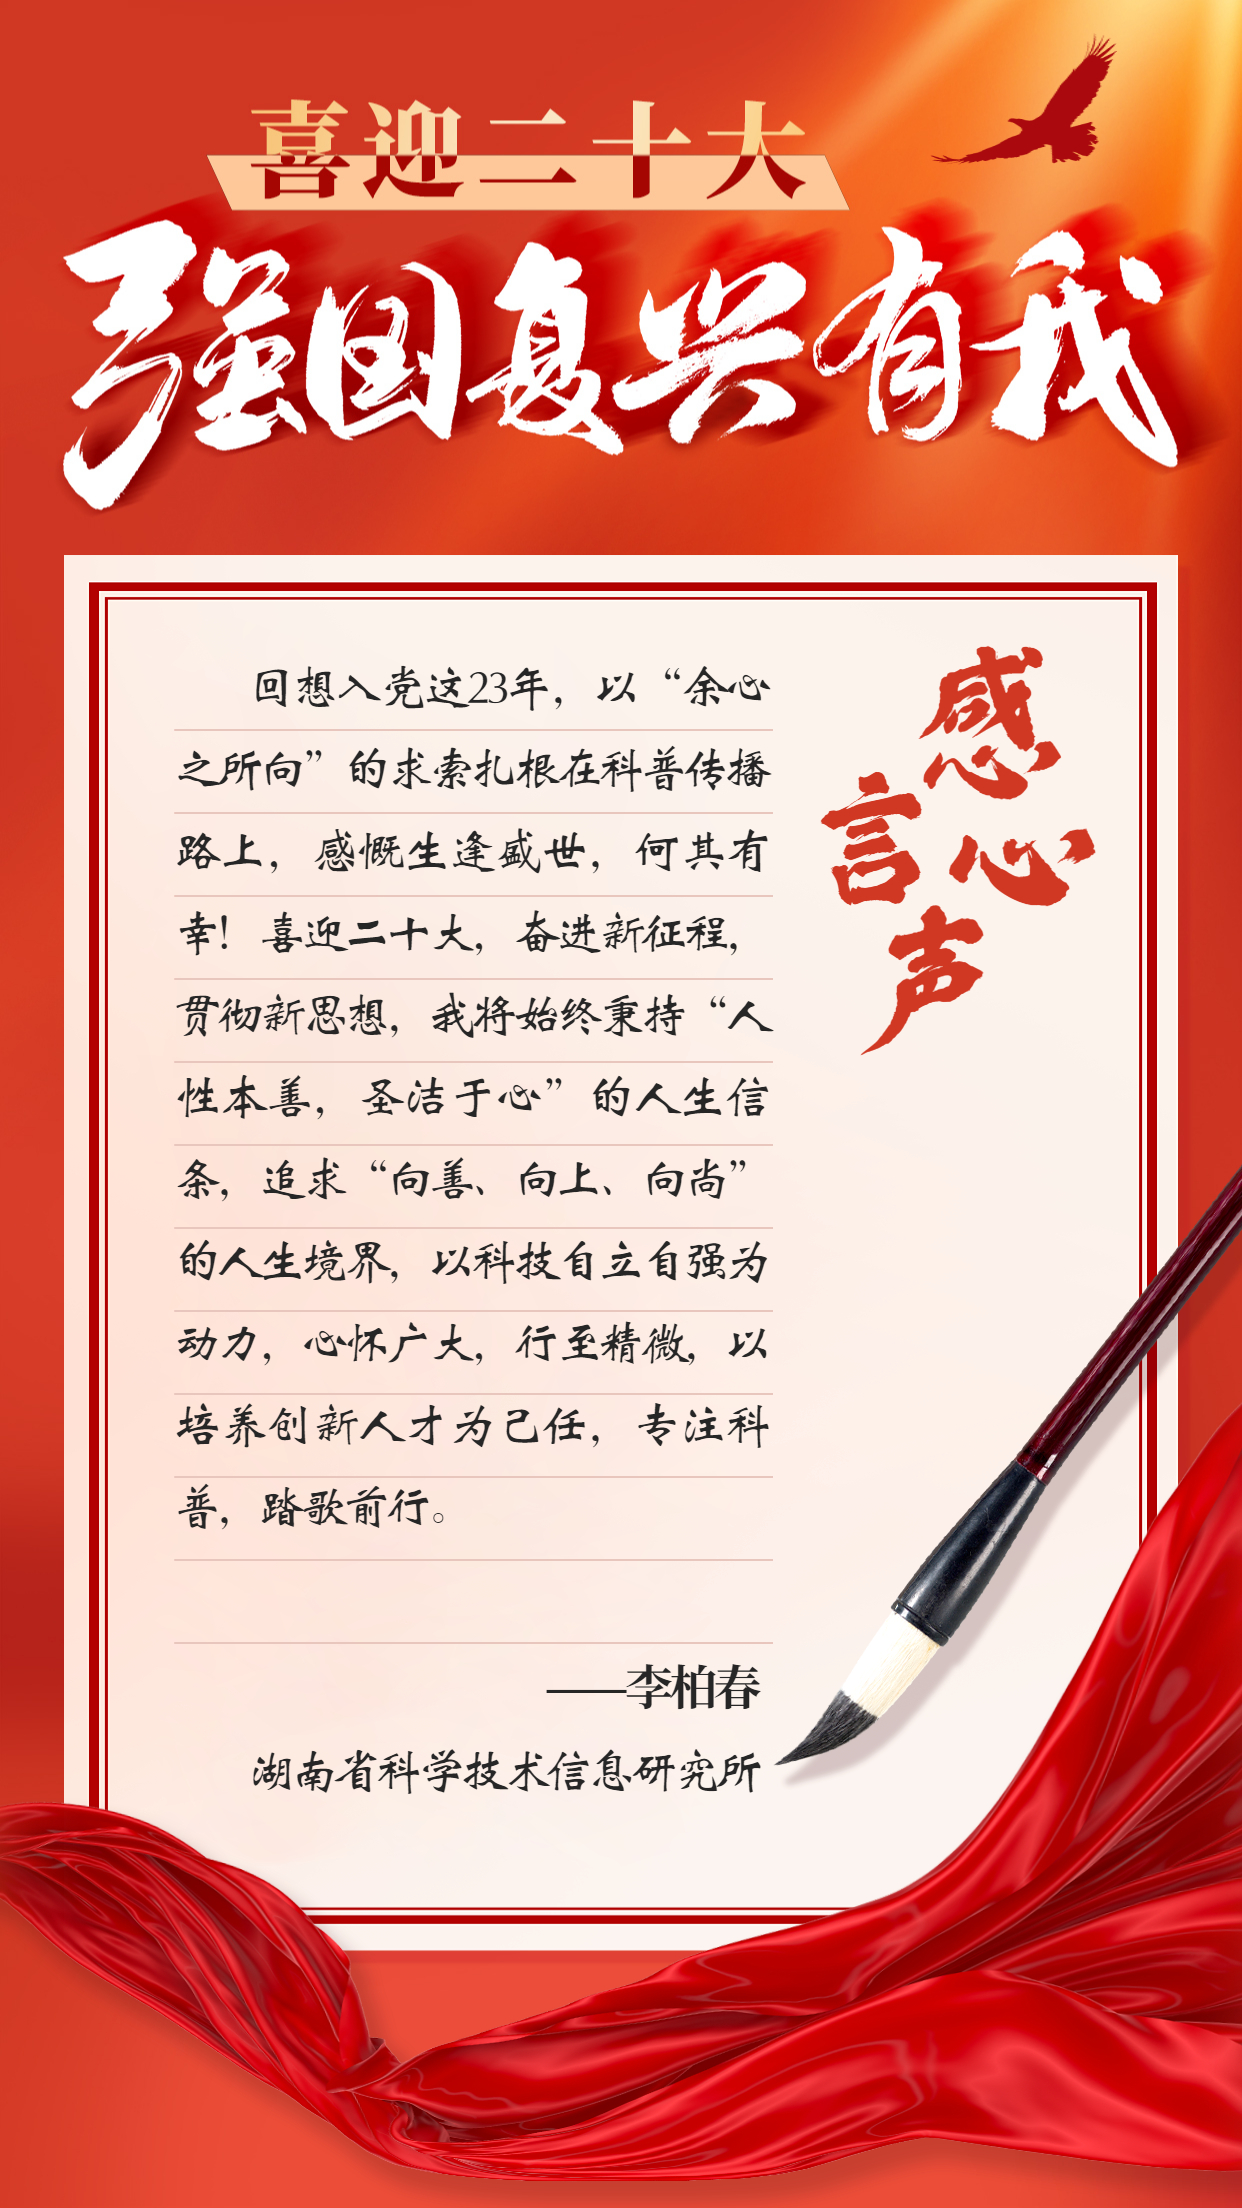 喜迎二十大
强国复兴有我
感言心声
回想入党这23年，以“余心
之所向”的求索扎根在科普传播
路上，感慨生逢盛世，何其有
幸！喜迎二十大，奋进新征程，
贯彻新思想，我将始终秉持“人
性本善，圣洁于心”的人生信
条，追求“向善、向上、向尚”
的人生境界，以科技自立自强为
动力，心怀广大，行至精微，以
培养创新人才为己任，专注科
普，踏歌前行。
——李柏春
湖南省科学技术信息研究所